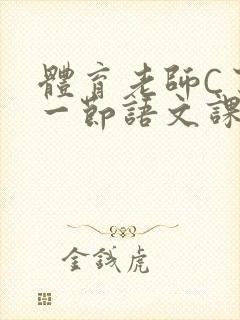 體育老師C了
一節語文課
金錢虎